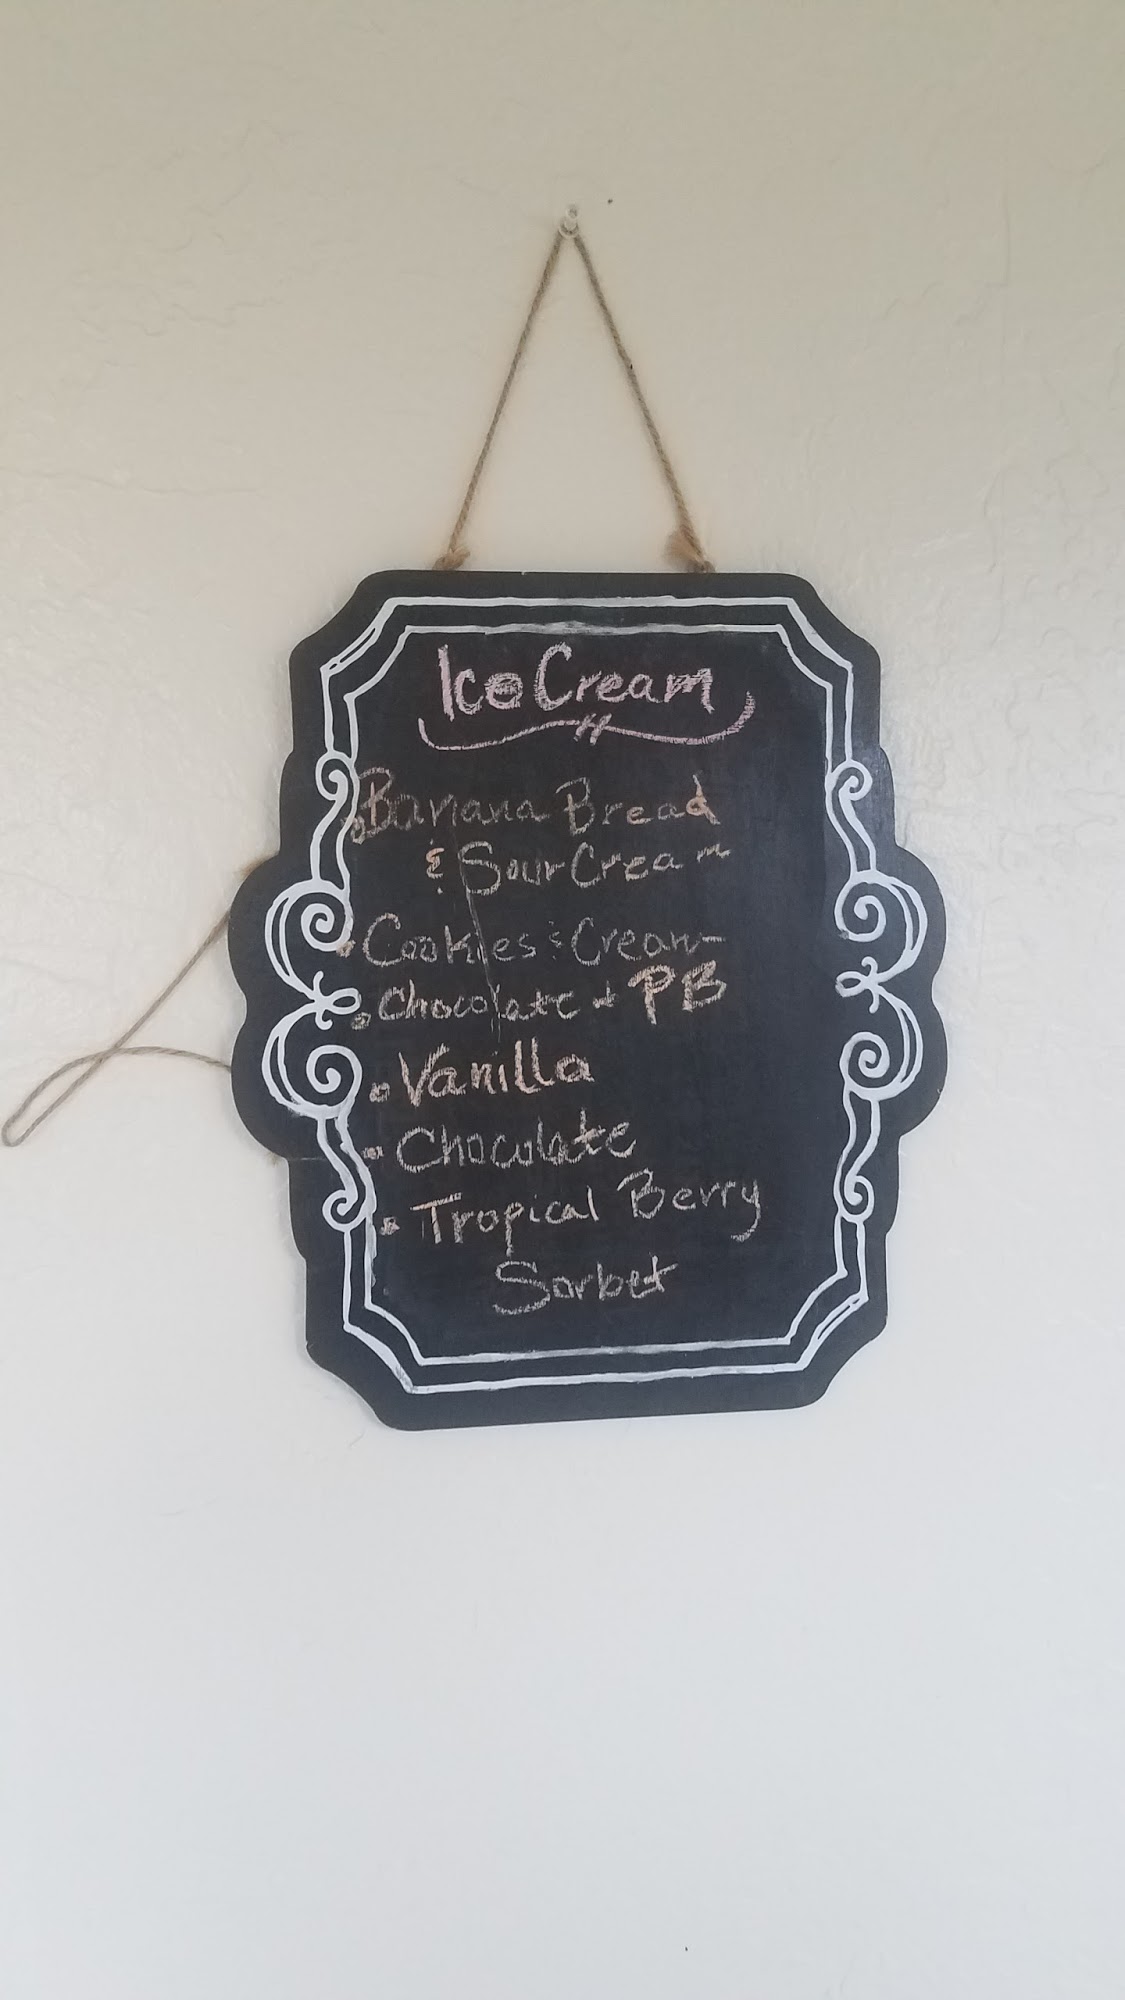 Ice Cream
• Banana Bread
& Sour Cream
• Cookies & Cream
• Chocolate + PB
• Vanilla
• Chocolate
• Tropical Berry
Sorbet